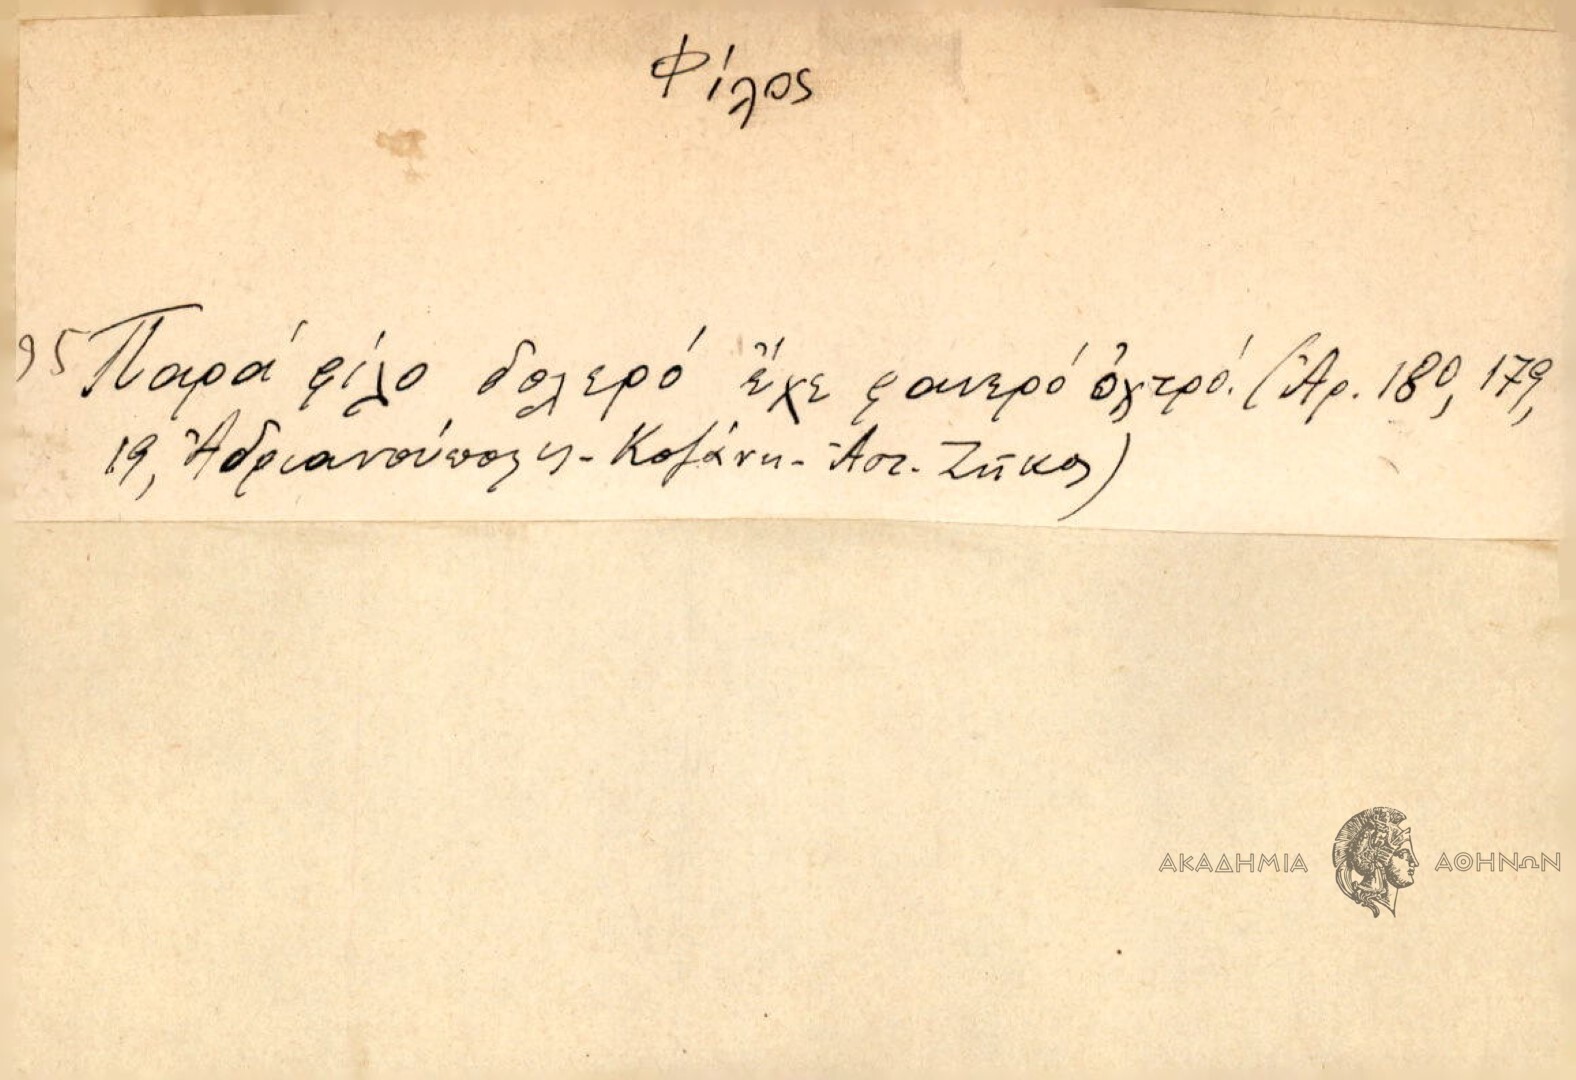 Φίλος
95 Παρά φίλο δολερό ἔχε φανερό ὀχτρό. (Ἀρ. 180, 179,
19, Ἀδριανούπολις - Κοζάνη - Ἀστ. Ζῆκος)
ΑΚΑΔΗΜΙΑ ΑΘΗΝΩΝ